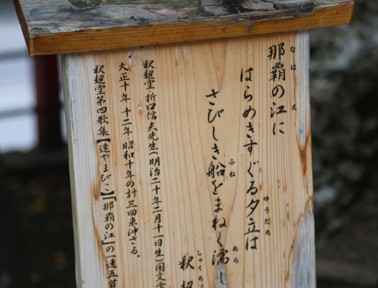 那覇の江に
なはえ
はらめきすぐる夕立は
ゆうだち
さびしき船をまねく濡
ふねぬら
釈迢
しゃくちょ
釈迢空 折口信夫先生(明治二十年二月十一日生)国文学
大正十年、十二年、昭和十年の計三回来沖さる。
釈迢空第四歌集【遠やまびこ】「那覇の江」の(連五首